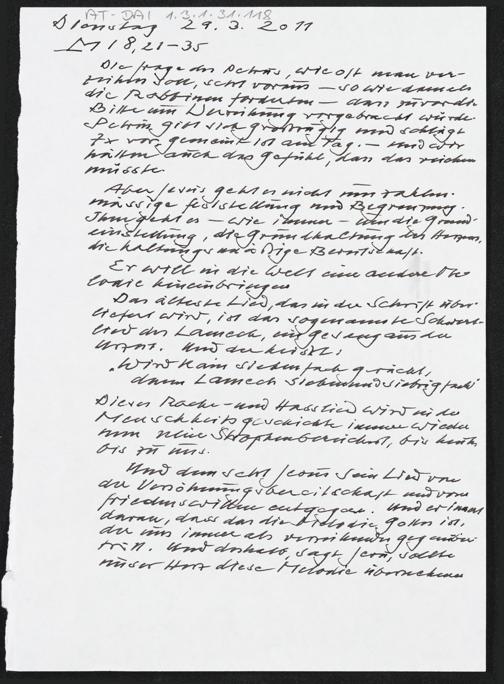 AT-DAI 1.3.1.31.118
Dienstag 29.3.2011
18,21-35
Die Frage des Petrus, wie oft man ver-
zeihen soll, setzt voraus – so wie damals
die Rabbinen forderten – dass zuvor die
Bitte um Verzeihung vorgebracht würde
Petrus gibt sich großzügig und schlägt
7x vor, gemeint ist am Tag. – Und wir
hätten auch das Gefühl, dass das reichen
müsste.
Aber Jesus geht es nicht um zahlen-
mässige Feststellung und Begrenzung.
Ihm geht es – wie immer – um die Grund-
einstellung, die Grundhaltung des Herzens,
die haltungsmäßige Bereitschaft.
Er will in die Welt eine andere Me
lodie hineinbringen
Das älteste Lied, das in der Schrift über-
liefert wird, ist das sogenannte Schwert-
lied des Lamech, ein Gesang aus der
Urzeit. Und der heisst:
„Wird Kain siebenfach gerächt,
dann Lamech siebenundsiebzigfach"
Dieses Rache- und Hasslied wird in der
Menschheitsgeschichte immer wieder
um neue Strophen bereichert, bis heute
bis zu uns.
Und dem setzt Jesus sein Lied von
der Versöhnungsbereitschaft und vom
Friedenswillen entgegen. Und er innert
daran, dass das die Melodie Gottes ist,
der uns immer als verzeihender gegenüber
tritt. Und deshalb, sagt Jesus, sollte
unser Herz diese Melodie übernehmen